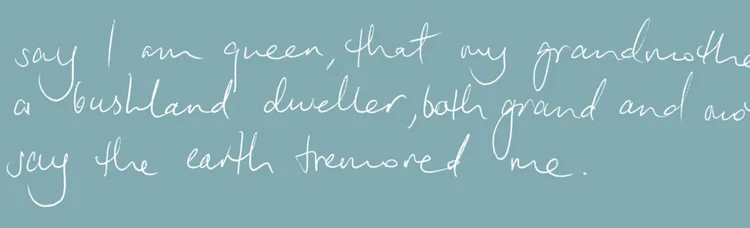 say I am queen, that my grandmothe
a bushland dweller, both grand and mo
say the earth tremored me.